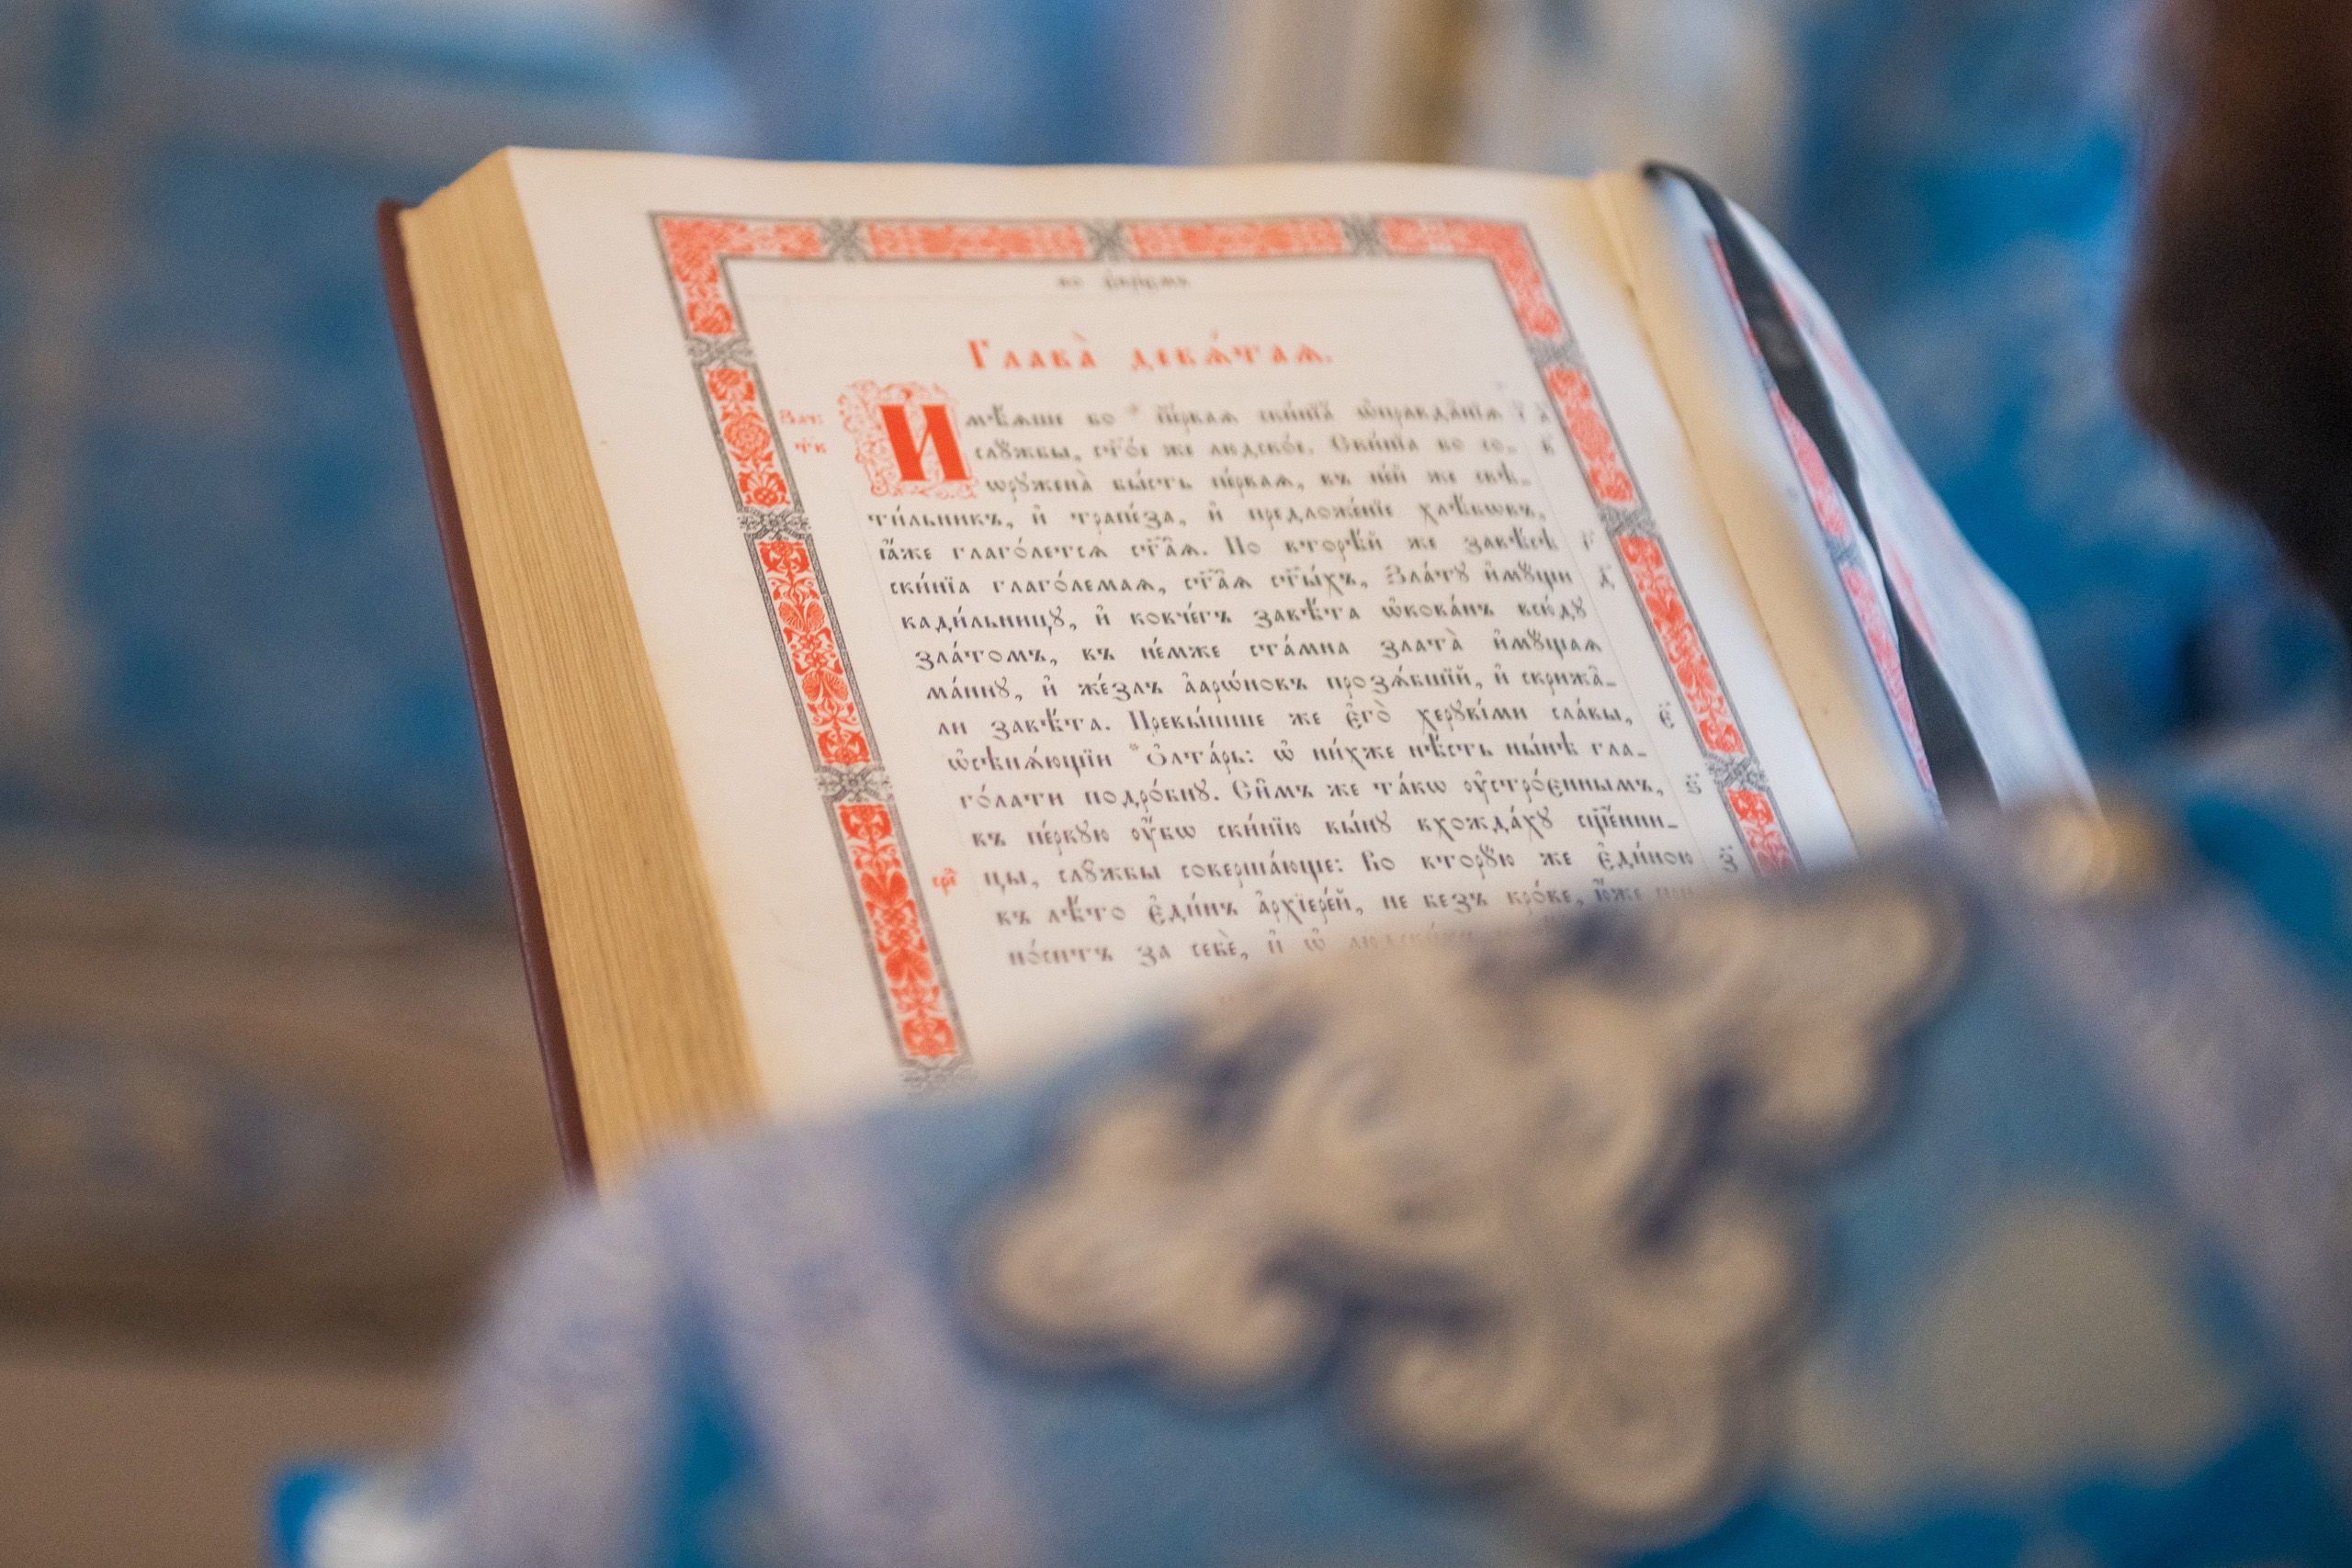 Глава̀ девѧ́таѧ.
Зач:
т҃к
Имѣѧше во * пе́рваѧ ски́нїѧ ѡ҆правда̑нїѧ
слꙋ́жбы, ст҃о́е же людско́е. Ски́нїа бо со-
ѡрꙋженà бы́сть пе́рваѧ, въ не́й же свѣ-
ти́льникъ, и҆ трапе́за, и҆ предложе́нїе хлѣ́бѡвъ,
ꙗ҆́же глаго́летсѧ ст҃а̑ѧ. По вторѣ́й же завѣ́сѣ г҃
ски́нїа глаго́лемаѧ, ст҃а̑ѧ ст҃ы́хъ, Зла́тꙋ и҆мꙋ́щи д҃
кади́льницꙋ, и҆ ковче́гъ завѣ́та ѡ҆кова́нъ всю́дꙋ
зла́томъ, въ не́мже ста́мна злата̀ и҆мꙋ́щаѧ
ма́ннꙋ, и҆ же́злъ а҆арѡ́новъ прозѧ́бшїй, и҆ скрижа̑-
ли завѣ́та. Превы́шше же є҆гѡ̀ херꙋві́ми сла́вы, є҃
ѡ҆сѣнѧ́ющїи * Ѻ҆лта́рь: ѡ҆ ни́хже нѣ́сть ны́нѣ гла-
го́лати подро́бнꙋ. Си̑мъ же та́кѡ ᲂу҆стро́єннымъ, ѕ҃
въ пе́рвꙋю ᲂу҆́бѡ ски́нїю вы́нꙋ вхожда́хꙋ сщ҃е́нни-
сре҃ цы, слꙋ́жбы соверша́юще: Во вторꙋ́ю же є҆ди́ною з҃
въ лѣ́то є҆ди́нъ а҆рхїере́й, не без̾ кро́ве, ю҆́же при-
но́ситъ за себѐ, и҆ ѡ҆ людски́хъ